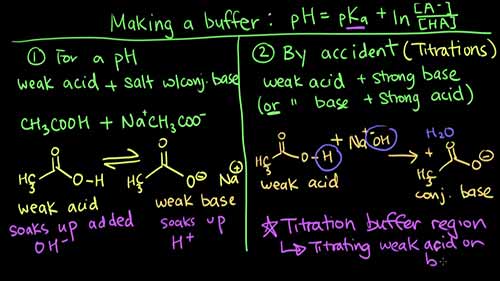 Making a buffer: pH = pKa + ln [A-]/[HA]
① For a pH
weak acid + salt w/conj. base
CH3COOH + Na+CH3COO-
O
O
H3C
O-H
H3C
O⊖
Na⊕
weak acid
weak base
soaks up added
OH-
soaks up
H+
② By accident (Titrations)
weak acid + strong base
(or " base + strong acid)
+ Na+ -OH
O
H3C
O-H
weak acid
H2O
+
O
H3C
O⊖
conj. base
☆ Titration buffer region
↳ Titrating weak acid on
b